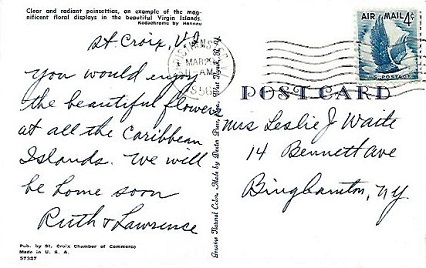 Clear and radiant poinsettias, an example of the mag-
nificent floral displays in the beautiful Virgin Islands.
Kodachrome by Hannau
St. Croix, V.I.
You would enjoy
the beautiful flowers
at all the Caribbean
Islands. We will
be home soon
Ruth & Lawrence
Pub. by St. Croix Chamber of Commerce
Made in U. S. A.
57327
Genuine Natural Color, Made by Dexter Press, Inc., West Nyack, N. Y.
MAR
AM
AIR MAIL 4¢
U.S. POSTAGE
POST CARD
Mrs Leslie J Waite
14 Bennett Ave
Binghamton, N.Y.